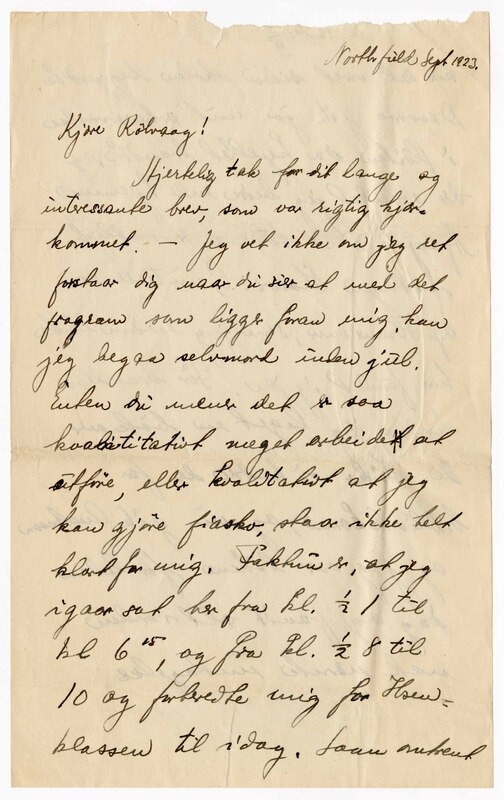 Northfield Sept 1923.
Kjære Rölvaag!
Hjertelig tak for dit lange og
interessante brev, som var rigtig kjær-
kommet. — Jeg vet ikke om jeg ret
forstaar dig naar du sier at med det
program som ligger foran mig, kan
jeg begaa selvmord inden jul.
Enten du mener det er saa
kvalitativt meget arbeide at
utföre, eller kvalitativt at jeg
kan gjöre fiasko, staar ikke helt
klart for mig. Faktum er, at jeg
igaar sat her fra kl. ½ 1 til
kl 6 15, og fra kl. ½ 8 til
10 og forberedte mig for Ibsen-
klassen til idag. Saan omtrent